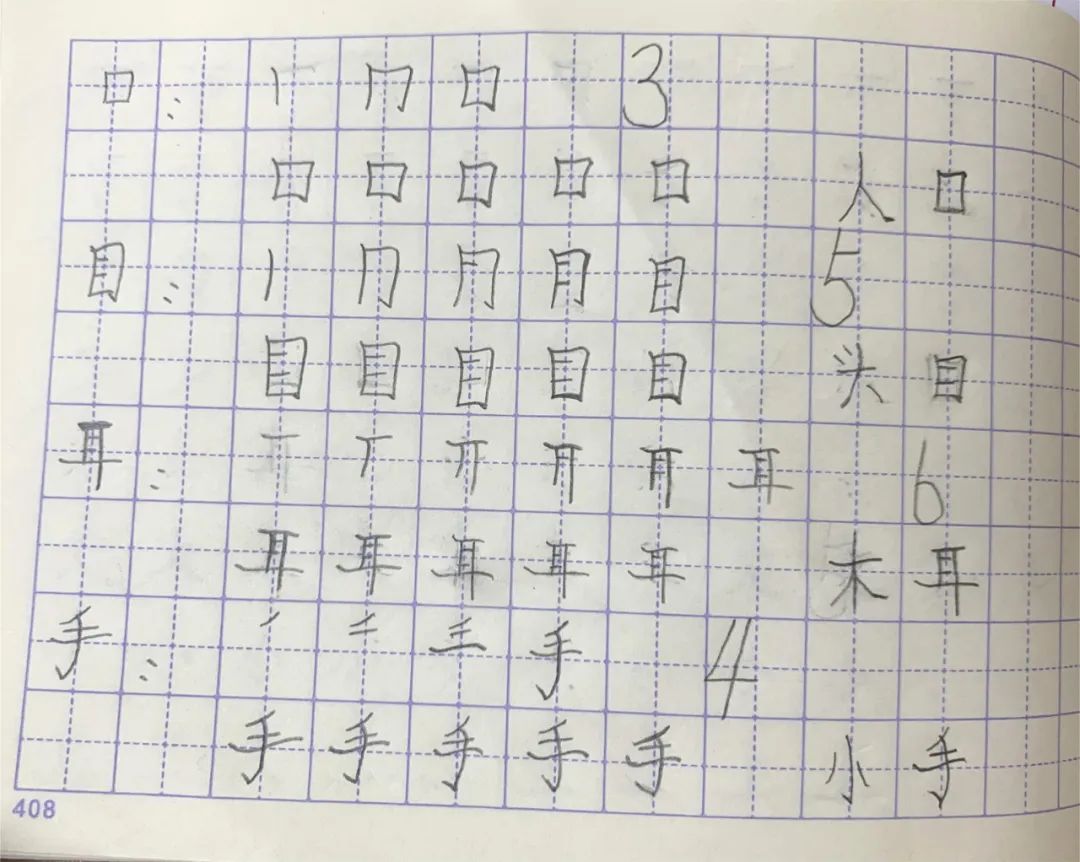 口： 丨 冂 口 3
口 口 口 口 口 人 口
目： 丨 冂 月 目 5
目 目 目 目 目 头 目
耳： 一 丅 丌 耳 6
耳 耳 耳 耳 耳 木 耳
手： 丿 二 三 手 4
手 手 手 手 手 小 手
408